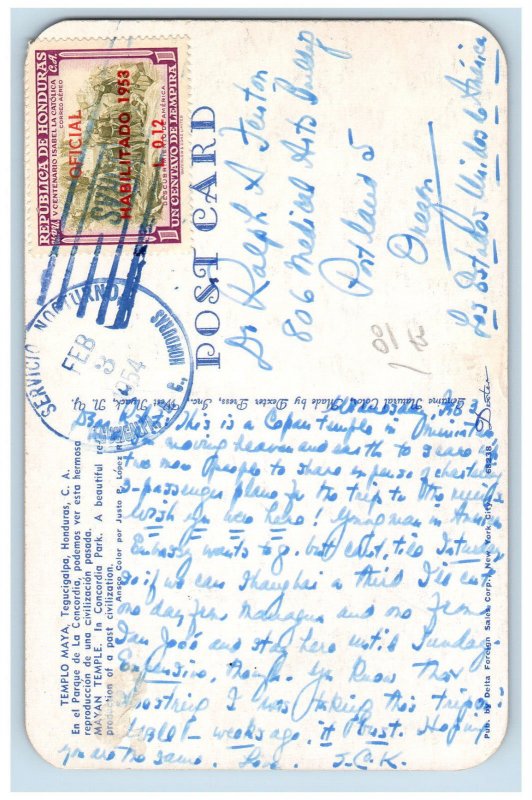 REPUBLICA DE HONDURAS
C.A.
V CENTENARIO ISABELLA CATÓLICA
CORREO AÉREO
OFICIAL
HABILITADO 1953
L 0.12
DESCUBRIMIENTO DE AMÉRICA
UN CENTAVO DE LEMPIRA
SERVICIO
FEB
3
1954
HONDURAS
POST CARD
Dr Ralph S Fenton
806 Medical Arts Bldg
Portland 5
Oregon
Los Estados Unidos de América
Genuine Natural Color Made by Dexter Press, Inc., West Nyack, N. Y.
Dexter
68438
Pub. by Delta Foreign Sales Corp., New York City
TEMPLO MAYA, Tegucigalpa, Honduras, C. A.
En el Parque de La Concordia, podemos ver esta hermosa
reproducción de una civilización pasada.
MAYAN TEMPLE. In Concordia Park. A beautiful re-
production of a past civilization.
Ansco Color por Justo P. López R.
Wednesday, Feb 3
This is a Copan temple in miniature
moving heaven and earth to scare up
two more people to share expense of chartering
3-passenger plane for the trip to the ruins.
Wish you were here! Young man in American
Embassy wants to go. but can't, til Saturday
so if we can Shanghai a third I'll cut
one day from Managua and one from
San José and stay here until Sunday.
Expensive though. You know the
shoestring I was taking this trip
weeks ago. it Bust. Hoping
you are the same. Love. J.C.K.